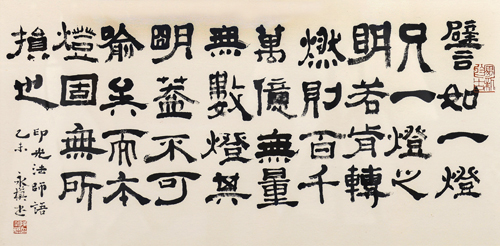 譬如一燈
只一燈之
明若肯轉
燃則百千
萬億無量
無數燈其
明蓋不可
喻矣而本
燈固無所
損也
印光法師語
乙未
永 書